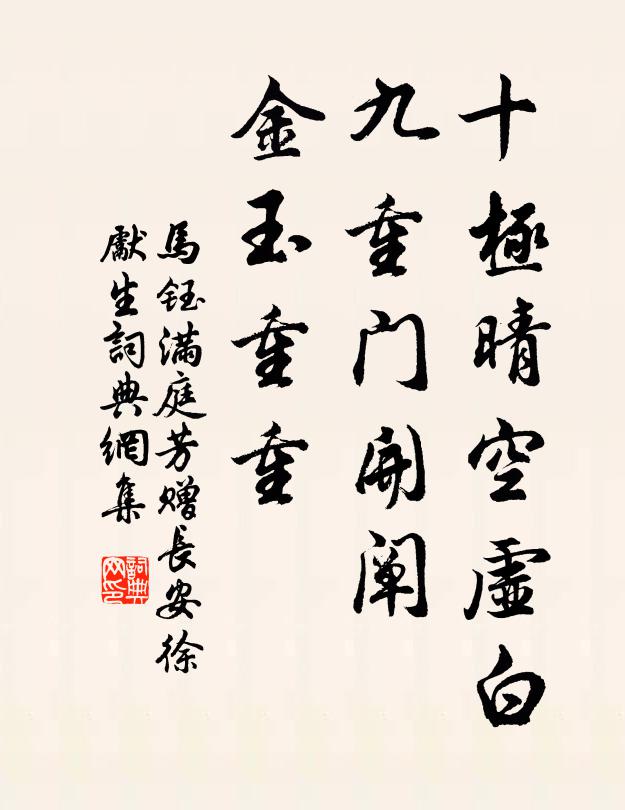 十極晴空虛白
九重门開闡
金玉重重
馬鈺满庭芳赠長安徐
獻生詞典網集
詞典网印